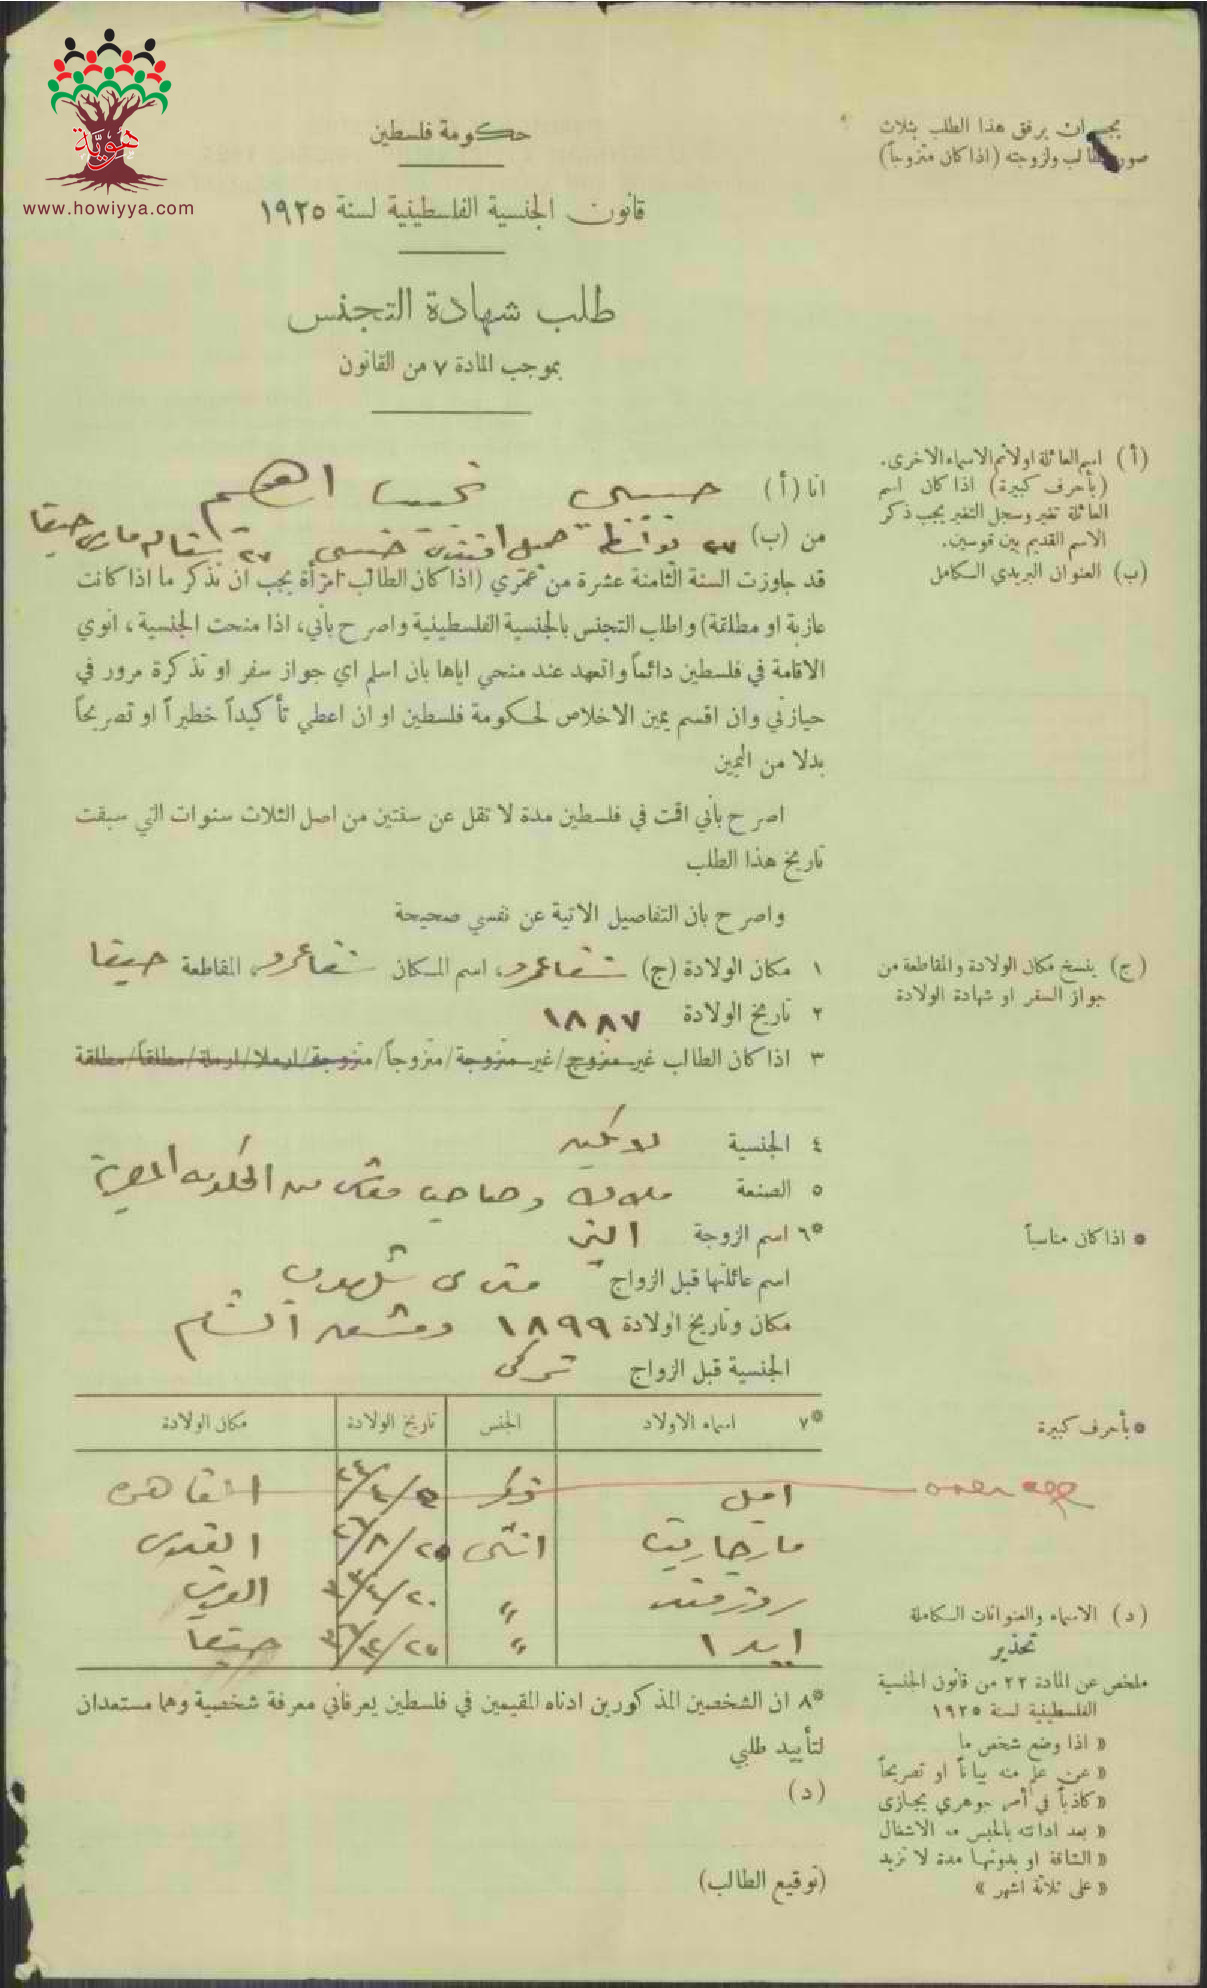 هوية
www.howiyya.com
يجب ان يرفق هذا الطلب بثلاث
صور للطالب ولزوجته (اذا كان متزوجاً)
حكومة فلسطين
قانون الجنسية الفلسطينية لسنة ١٩٢٥
طلب شهادة التجنس
بموجب المادة ٧ من القانون
(أ) اسم العائلة اولا ثم الاسماء الاخرى.
(بأحرف كبيرة) اذا كان اسم
العائلة تغير وسجل التغير يجب ذكر
الاسم القديم بين قوسين.
(ب) العنوان البريدي الكامل
انا (أ) حبيبي ابراهيم
من (ب) بواسطة جميل افندي حبيبي حيفا
قد جاوزت السنة الثامنة عشرة من عمري (اذا كان الطالب امرأة يجب ان تذكر ما اذا كانت
عازبة او مطلقة) واطلب التجنس بالجنسية الفلسطينية واصرح بأني، اذا منحت الجنسية، انوي
الاقامة في فلسطين دائماً واتعهد عند منحي اياها بان اسلم اي جواز سفر او تذكرة مرور في
حيازتي وان اقسم يمين الاخلاص لحكومة فلسطين او ان اعطي تأكيداً خطيراً او تصريحاً
بدلا من اليمين
اصرح بأني اقمت في فلسطين مدة لا تقل عن سنتين من اصل الثلاث سنوات التي سبقت
تاريخ هذا الطلب
واصرح بان التفاصيل الاتية عن نفسي صحيحة
(ج) ينسخ مكان الولادة والمقاطعة من
جواز السفر او شهادة الولادة
١ مكان الولادة (ج) شفاعمرو، اسم المكان شفاعمرو، المقاطعة حيفا
٢ تاريخ الولادة ١٨٨٧
٣ اذا كان الطالب غير متزوج/غير متزوجة/متزوجاً/متزوجة/ارملا/ارملة/مطلقاً/مطلقة
٤ الجنسية
٥ الصنعة ملاك وصاحب معاش من الحكومة المصرية
* اذا كان مناسباً
*٦ اسم الزوجة
اسم عائلتها قبل الزواج متى شلهوب
مكان وتاريخ الولادة ١٨٩٩ دمشق الشام
الجنسية قبل الزواج تركي
* بأحرف كبيرة
*٧ اسماء الاولاد الجنس تاريخ الولادة مكان الولادة
اميل ذكر القاهرة
مارجاريت انثى ٢٥/٨/٢٦ القدس
٢٠/٤/٣٣ القدس
ايدا " ٢٥/٢/٣٦ حيفا
(د) الاسماء والعنوانات الكاملة
تحذير
ملخص عن المادة ٢٢ من قانون الجنسية
الفلسطينية لسنة ١٩٢٥
« اذا وضع شخص ما
« عن علم منه بياناً او تصريحاً
« كاذباً في أمر جوهري يجازى
« بعد ادانته بالحبس مع الاشغال
« الشاقة او بدونها مدة لا تزيد
« على ثلاثة اشهر »
*٨ ان الشخصين المذكورين ادناه المقيمين في فلسطين يعرفاني معرفة شخصية وهما مستعدان
لتأييد طلبي
(د)
(توقيع الطالب)